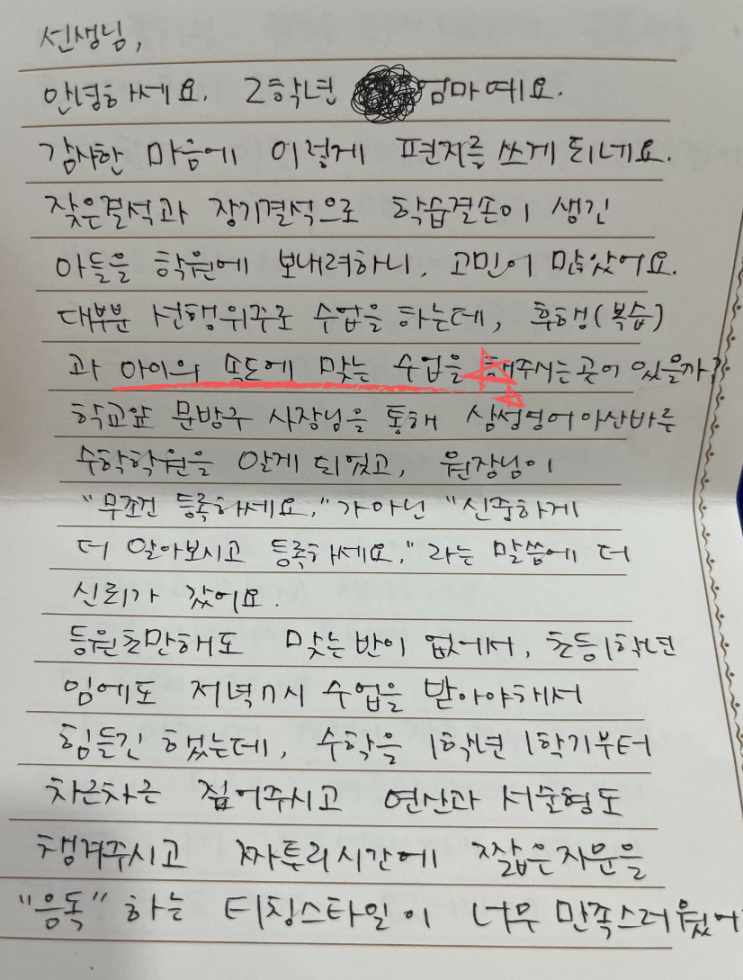 선생님,
안녕하세요. 2학년 엄마예요.
감사한 마음에 이렇게 편지를 쓰게 되네요.
잦은결석과 장기결석으로 학습결손이 생긴
아들을 학원에 보내려하니, 고민이 많았어요.
대부분 선행위주로 수업을 하는데, 후행(복습)
과 아이의 속도에 맞는 수업을 해주시는곳이 있을까?
학교앞 문방구 사장님을 통해 삼성영어아산바른
수학학원을 알게 되었고, 원장님이
"무조건 등록하세요."가 아닌 "신중하게
더 알아보시고 등록하세요."라는 말씀에 더
신뢰가 갔어요.
등원초만해도 맞는반이 없어서, 초등1학년
임에도 저녁7시 수업을 받아야해서
힘들긴 했는데, 수학을 1학년 1학기부터
차근차근 짚어주시고 연산과 서술형도
챙겨주시고 짜투리시간에 짧은지문을
"음독"하는 티칭스타일이 너무 만족스러웠어